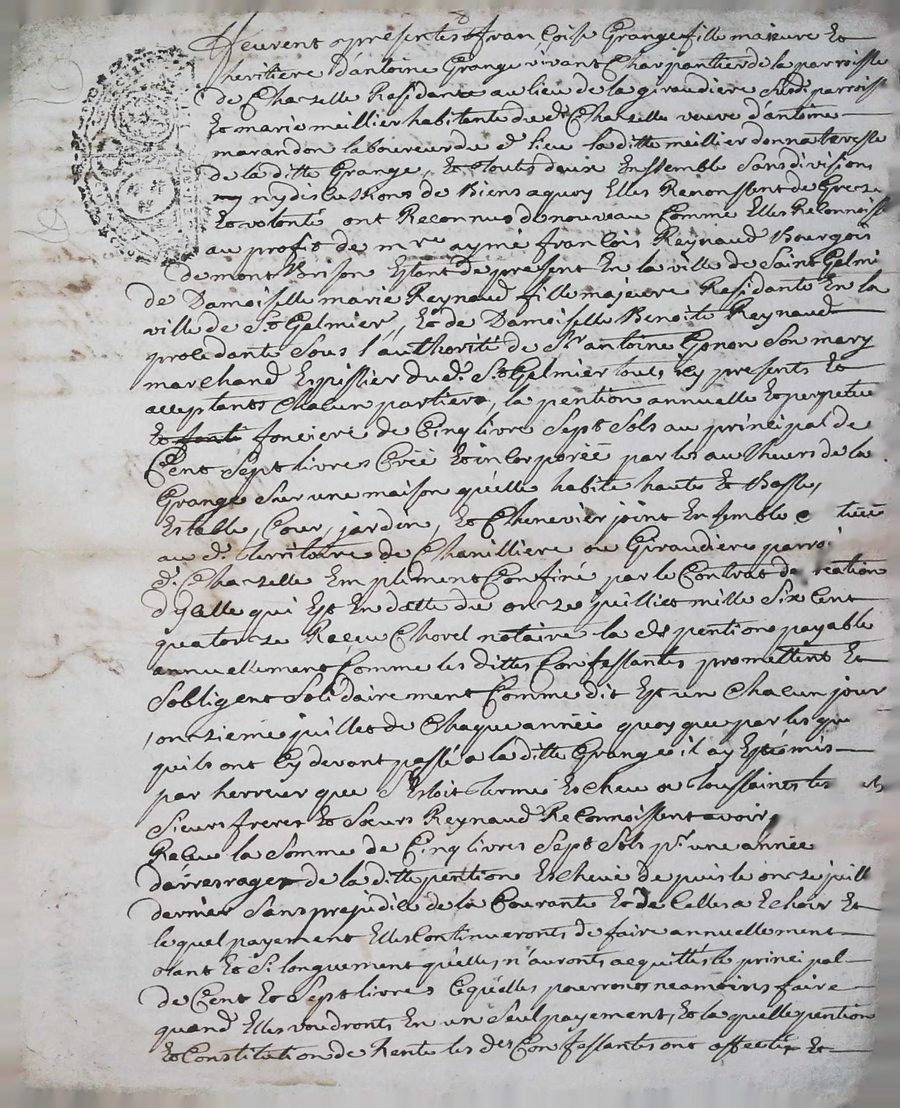 feurent presentes françoise Grange fille maieure Et
heritiere d'antoine Grange vivant Charpantier de la parroisse
de Chazelle Residante au lieu de la giraudiere susd. parroisse
Et marie meillier habitante du d. Chazelle veuve d'antoine
marandon laboureur du d. lieu la ditte meillier donnataresse
de la ditte Grange, Et toutes deux Enssemble sans division
ny discussions de Biens aquoy Elles Renonssent de Grez
Et volonté ont Reconnus de nouveau Comme Elles Reconnoisse
au profit de mre aymé françois Reynaud Bourgois
de mont Brison Estant de present En la ville de Saint Gelmi
de Damoiselle marie Reynaud fille majeure Residante En la
ville de St Gelmier, Et de Damoiselle Benoite Reynaud
procedante sous l'authorité de Sr antoine Gonon son mary
marchand Espissier du d. St Gelmier tous icy presents Et
acceptants chacun partiera, la pention annuelle Et perpetue
Et fonciere de Cinq livre Sept Sols au principal de
Cent Sept livres Créé Et incorporéé par les autheurs de la
Grange sur une maison qu'elle habite haute Et Basse,
Estable, Cour, jardin, Et Chenevier joint Ensemble
au d. territoire de Chanilliere ou Giraudiere parroi
d. Chazelle Emplement Confiné par le Contrat de reation
d'ycelle qui Est En datte du onze juilliet mille Six Cent
quatorze Reçeu Chovel notaire la de pention payable
annuellement Comme les dittes Confessantes promettent Et
Sobligent Solidairement Comme dit Est un Chacun jour
onzieme juillet de Chaque année quoy que par les qu
quils ont Cy devant passé a la ditte Grange il ay Esté mis
par herreur que s'Estoit terme Escheu a toussaints les
Sieurs freres Et Sœurs Reynaud Reconnoissent avoir
Reçeu la Somme de Cinq livres Sept Sols pr. une année
d'arresrages de la ditte pention Escheüe de puis le onze juill
dernier Sans prejudice de la Courante Et de Celles a Echoir Et
le quel payement Elles Continueronts de faire annuellement
tant Et Si longuement qu'elles n'auronts acquittés le principal
de Cent Et Sept livres Ce qu'elles pourronts neamoins faire
quand Elles voudronts En un Seul payement, Et la quelle pention
Et Constitution de Rente les des Confessantes ont affectée Et